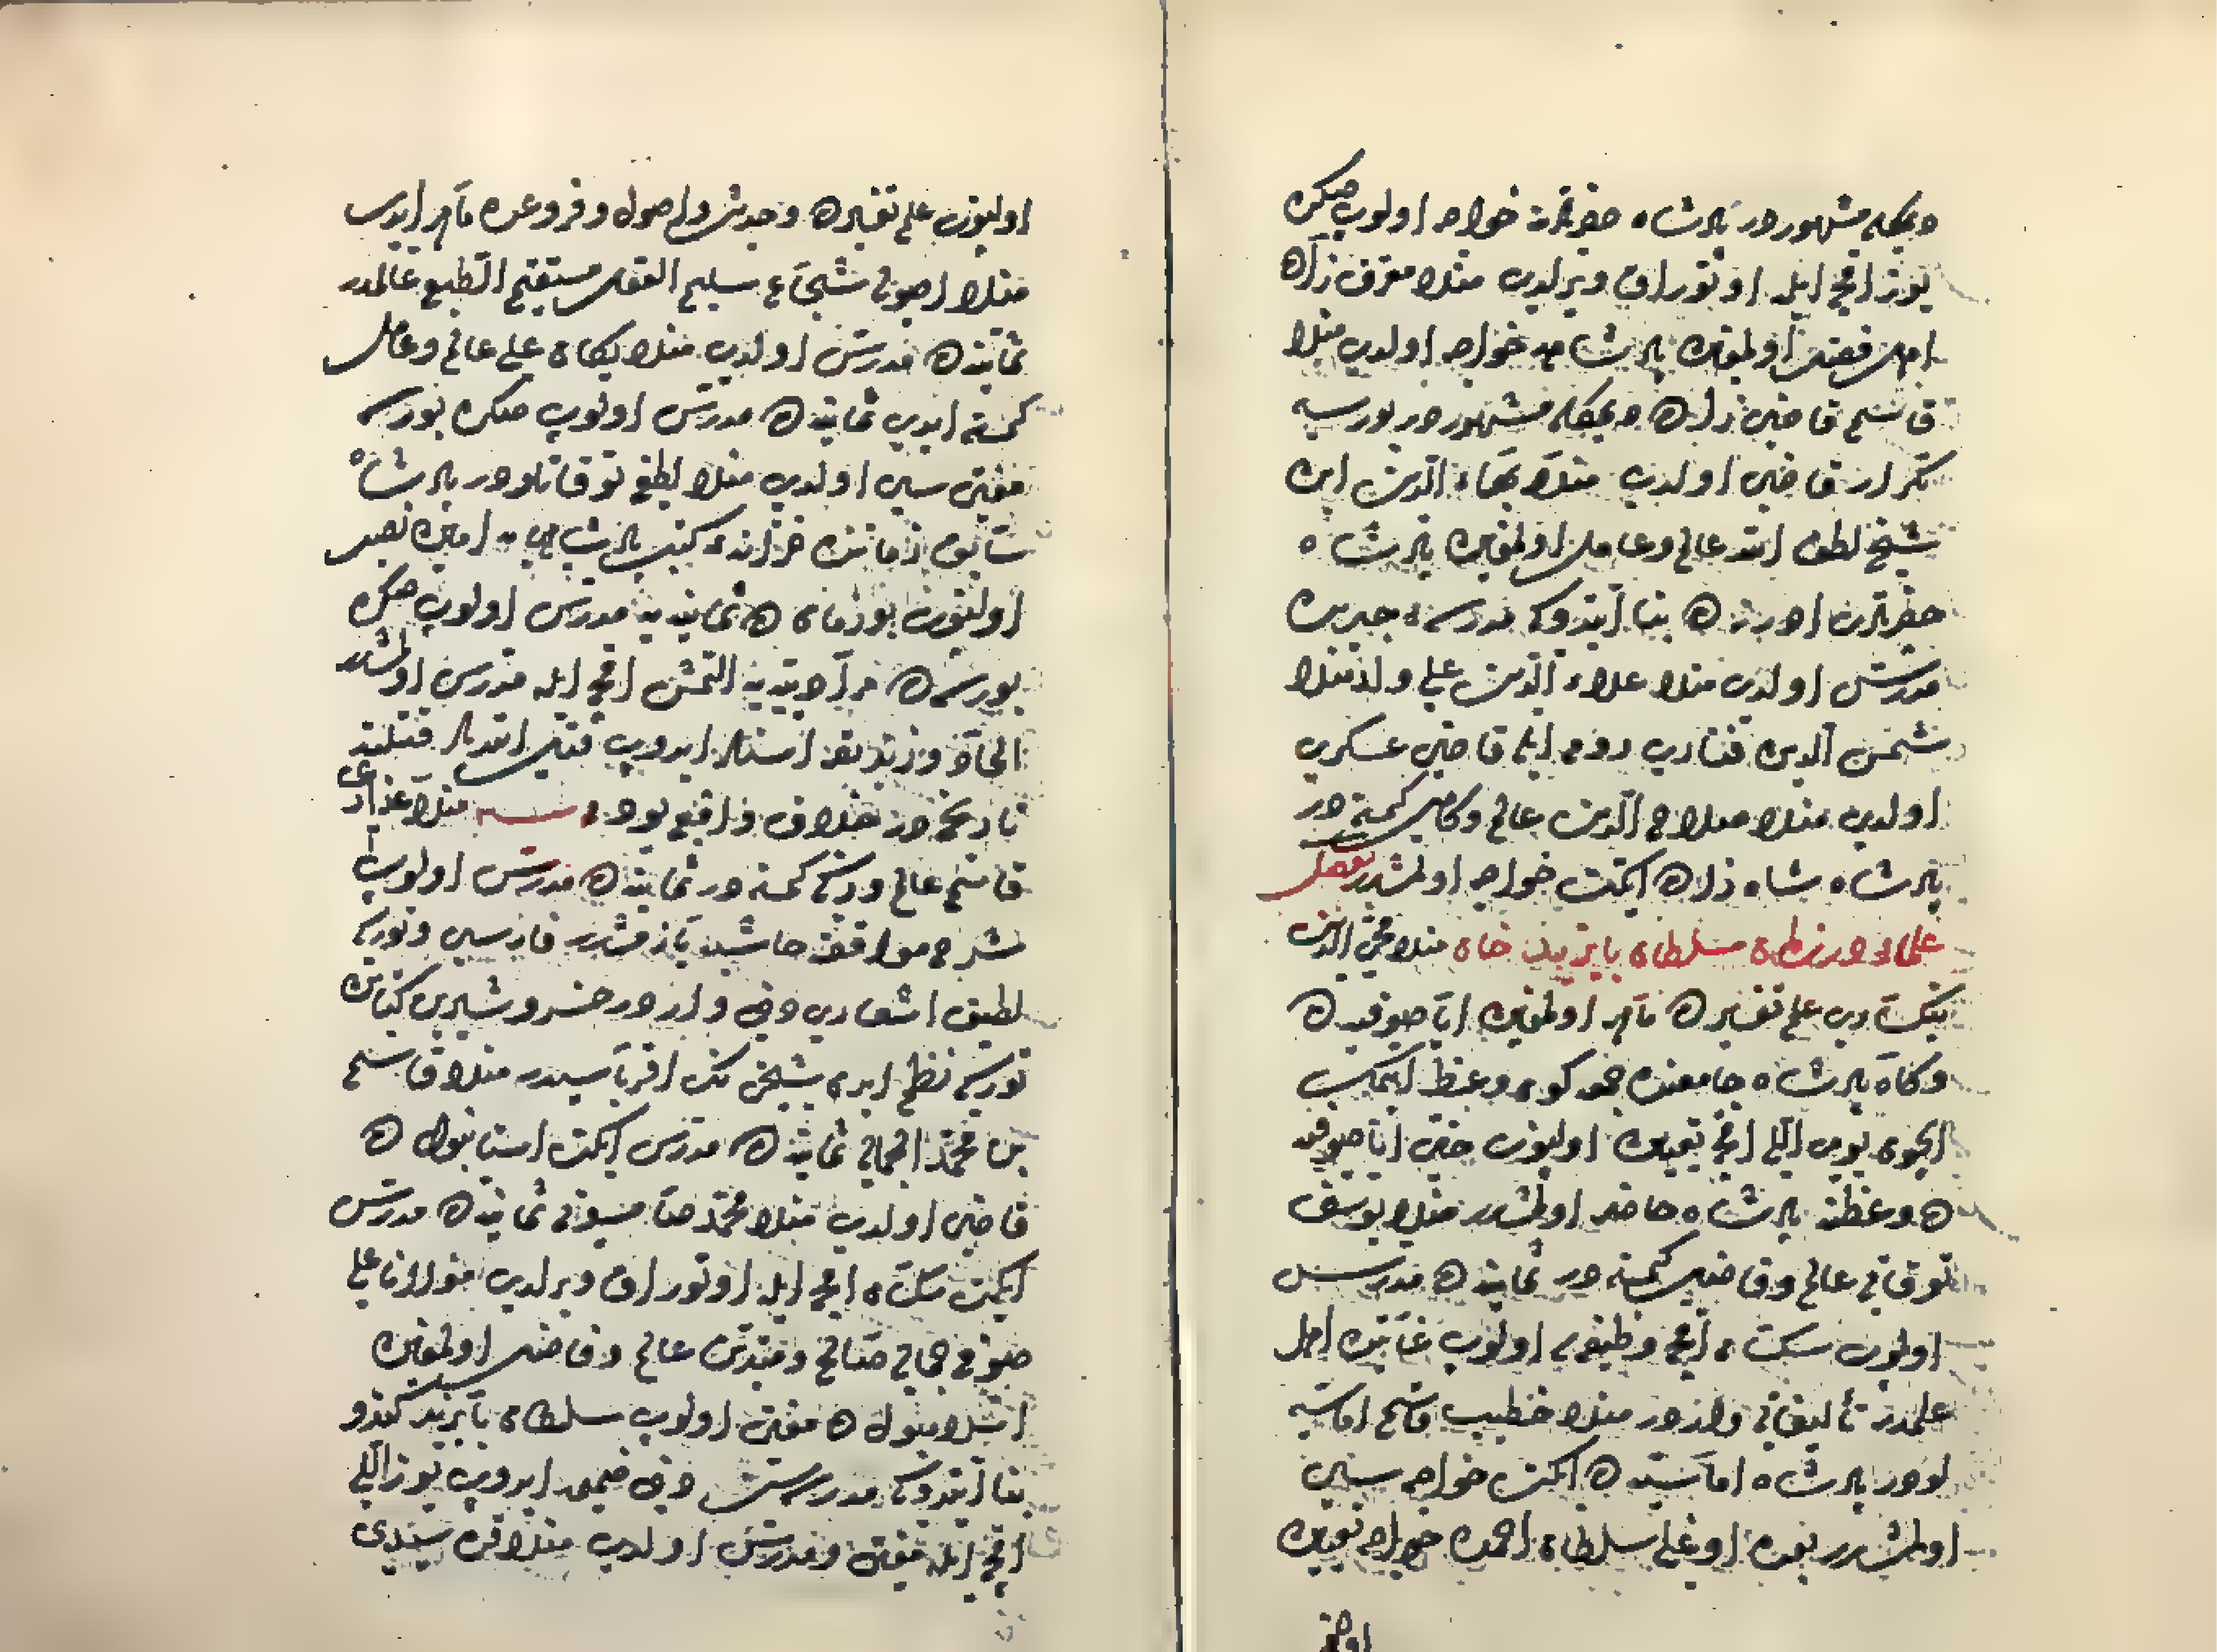 دیمکله مشهوردر پادشاه حضرتلرینه خواجه اولوب صکره
یوز اقچه ایله اوتوراق ویرلدی منلا معرف زاده
اهل فضل اولمغین پادشاهه خواجه اولدی منلا
قاسم قاضی زاده دیمکله مشهوردر بورسیه
تکرار قاضی اولدی منلا بهاء الدین ابن
شیخ لطف الله عالم وعامل اولمغین پادشاه
حضرتلری ادرنه ده بنا ایتدوکی مدرسه جدیده
مدرس اولدی منلا علاء الدین علی ولد منلا
شمس الدین فناری روم ایلی قاضی عسکری
اولدی منلا صلاح الدین عالم وکامل کمسنه در
پادشاه شاه زاده ایکن خواجه اولمشدر فصل
علماء در زمان سلطان بایزید خان منلا محیی الدین
نیکساری علم تفسیرده ماهر اولمغین ایاصوفیه ده
وکاه پادشاه جامعنده جمعه کونی وعظ ایتمک
ایچون یومی اللی اقچه تعیین اولنوب حتی ایاصوفیه
ده وعظنه پادشاه حاضر اولمشدر منلا یوسف
توقاتی عالم وفاضل کمسنه در ثمانیه ده مدرس
اولوب سکسان اقچه وظیفه سی اولوب غایتده اهل
علمدر تألیفاتی واردر منلا خطیب قاسم اماسیه
لودر پادشاه اماسیه ده ایکن خواجه سی
اولمشدر بعده اوغلی سلطان احمده خواجه تعیین
اولنوب علم تفسیرده وحدیث واصول وفروعده ماهر ایدی
منلا شجاع سلیم العقل مستقیم الطبع عالمدر
ثمانیه ده مدرس اولدی منلا یکان علی عالم وعامل
کمسنه ایدی ثمانیه ده مدرس اولوب صکره بورسه
مفتی سی اولدی منلا لطفی توقاتلودر پادشاه
سابق زماننده خزانه کتب پادشاهی یه امین نصب
اولنوب بو زمانده ثمانیه یه مدرس اولوب صکره
بورسه ده مرادیه یه التمش اقچه ایله مدرس اولمشدر
الحاد وزندیقه اسناد ایدوب قتل ایتدیلر قتلینه
تاریخدر خلاف واقع بودر منلا عذاری
قاسم عالم وذکی کمسنه در ثمانیه ده مدرس اولوب
شرح مواقفه حاشیه یازمشدر فارسی وترکی
لطیف اشعاری دخی واردر خسرو شیرین کتابن
ترکی نظم ایدن شیخی نک اقرباسیدر منلا قاسم
بن محمد الجمالی ثمانیه ده مدرس ایکن استانبول ده
قاضی اولدی منلا محمد صامسونی ثمانیه ده مدرس
ایکن سکسان اقچه ایله اوتوراق ویرلدی مولانا علی
صوفی جمالی صالح ومتدین عالم وفاضل اولمغین
استانبول ده مفتی اولوب سلطان بایزید کندو
بنا ایتدوکی مدرسه سن دخی ضمیمه ایدوب یوز اللی
اقچه ایله مفتی ومدرس اولدی منلا قره سیدی